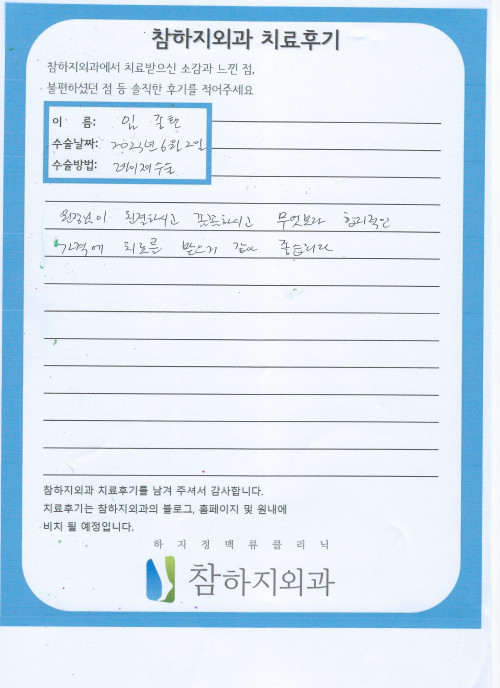 참하지외과 치료후기
참하지외과에서 치료받으신 소감과 느낀 점,
불편하셨던 점 등 솔직한 후기를 적어주세요
이 름: 임
수술날짜: 2025년 6월 2일
수술방법: 레이저수술
원장님이 친절하시고 꼼꼼하시고 무엇보다 합리적인
가격에 치료를 받으거 같아 좋습니다
참하지외과 치료후기를 남겨 주셔서 감사합니다.
치료후기는 참하지외과의 블로그, 홈페이지 및 원내에
비치 될 예정입니다.
하지정맥류클리닉
참하지외과